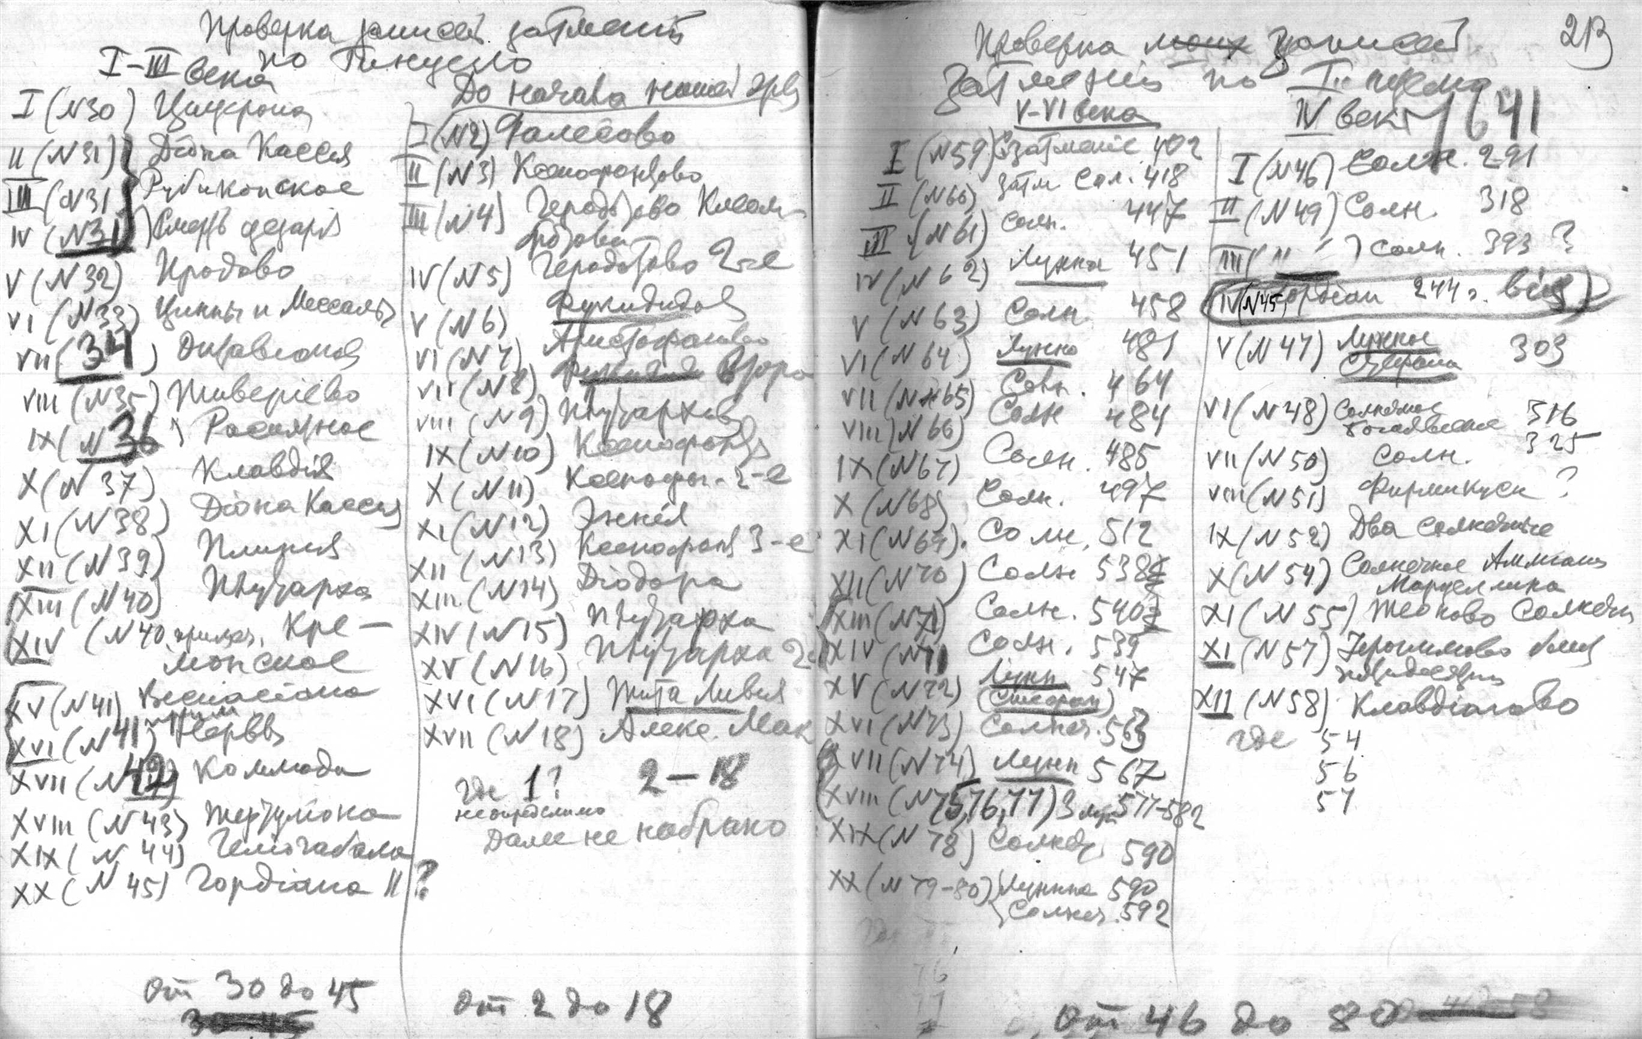 Проверка записей затменій
по Гинцелю
I-III века
I (N30) Цицерона
II (N31) Діона Кассія
III (N31) Рубиконское
IV (N31) Смерть цезаря
V (N32) Иродово
VI (N33) Цинны и Мессалы
VII (34) Октавіоново
VIII (N35) Тиверіево
IX (N36)
X (N37) Клавдія
XI (N38) Діона Кассія
XII (N39) Плинія
XIII (N40) Плутарха
XIV (N40 примеч. Кре-
монское
XV (N41) Веспасіана
XVI (N41) Нервы
XVII (N42) Коммода
XVIII (N43) Тертуліона
XIX (N44) Геліогабала
XX (N45) Гордіана II ?
от 30 до 45
30-45
До начала нашей эры
I (N2) Фалесово
II (N3) Ксенофонтово
III (N4) Геродотово Клеом-
бротово
IV (N5) Геродотово 2-е
V (N6) Фукидидов
VI (N7) Аристофаново
VII (N8) Второ
VIII (N9) Плутархов
IX (N10) Ксенофонтов
X (N11) Ксенофон. 2-е
XI (N12) Эннія
XII (N13) Ксенофонта 3-е
XIII (N14) Діодора
XIV (N15) Плутарха
XV (N16) Плутарха 2
XVI (N17) Тита Ливія
XVII (N18) Алекс. Мак
где 1? 2-18
неопределимо
Далее не набрано
от 2 до 18
213
Проверка моих записей
Затменій по Гинцелю
V-VI века
I (N59) затменіе 402
II (N60) затм Сол. 418
III (N61) Солн. 447
IV (N62) Лунна 451
V (N63) Солн. 458
VI (N64) Лунно 461
VII (N65) Солн. 464
VIII (N66) Солн 484
IX (N67) Солн. 485
X (N68) Солн. 497
XI (N69). Солн. 512
XII (N70) Солн 538
XIII (N71) Солн. 540
XIV (N71 Солн. 539
XV (N72) Лунн 547
XVI (N73) Солнеч. 563
XVII (N74) Лунн 567
XVIII (N75,76,77) 3 лун 577-582
XIX (N78) Солнеч 590
XX (N79-80) Лунна 590
Солнеч. 592
от 46 до 80
IV век 1641
I (N46) Солн. 291
II (N49) Солн. 318
III ( " ) Солн. 393 ?
IV (N45) Гордіан 244 г.
V (N47) Лунное 303
VI (N48) Солнечное 316
VII (N50) Солн. 325
VIII (N51) Фирмикуса ?
IX (N52) Два солнечные
X (N54) Солнечное Амміана
Марцеллина
XI (N55) Теоново Солнечн
XI (N57) Іеронимово
XII (N58) Клавдіаново
где 54
56
57